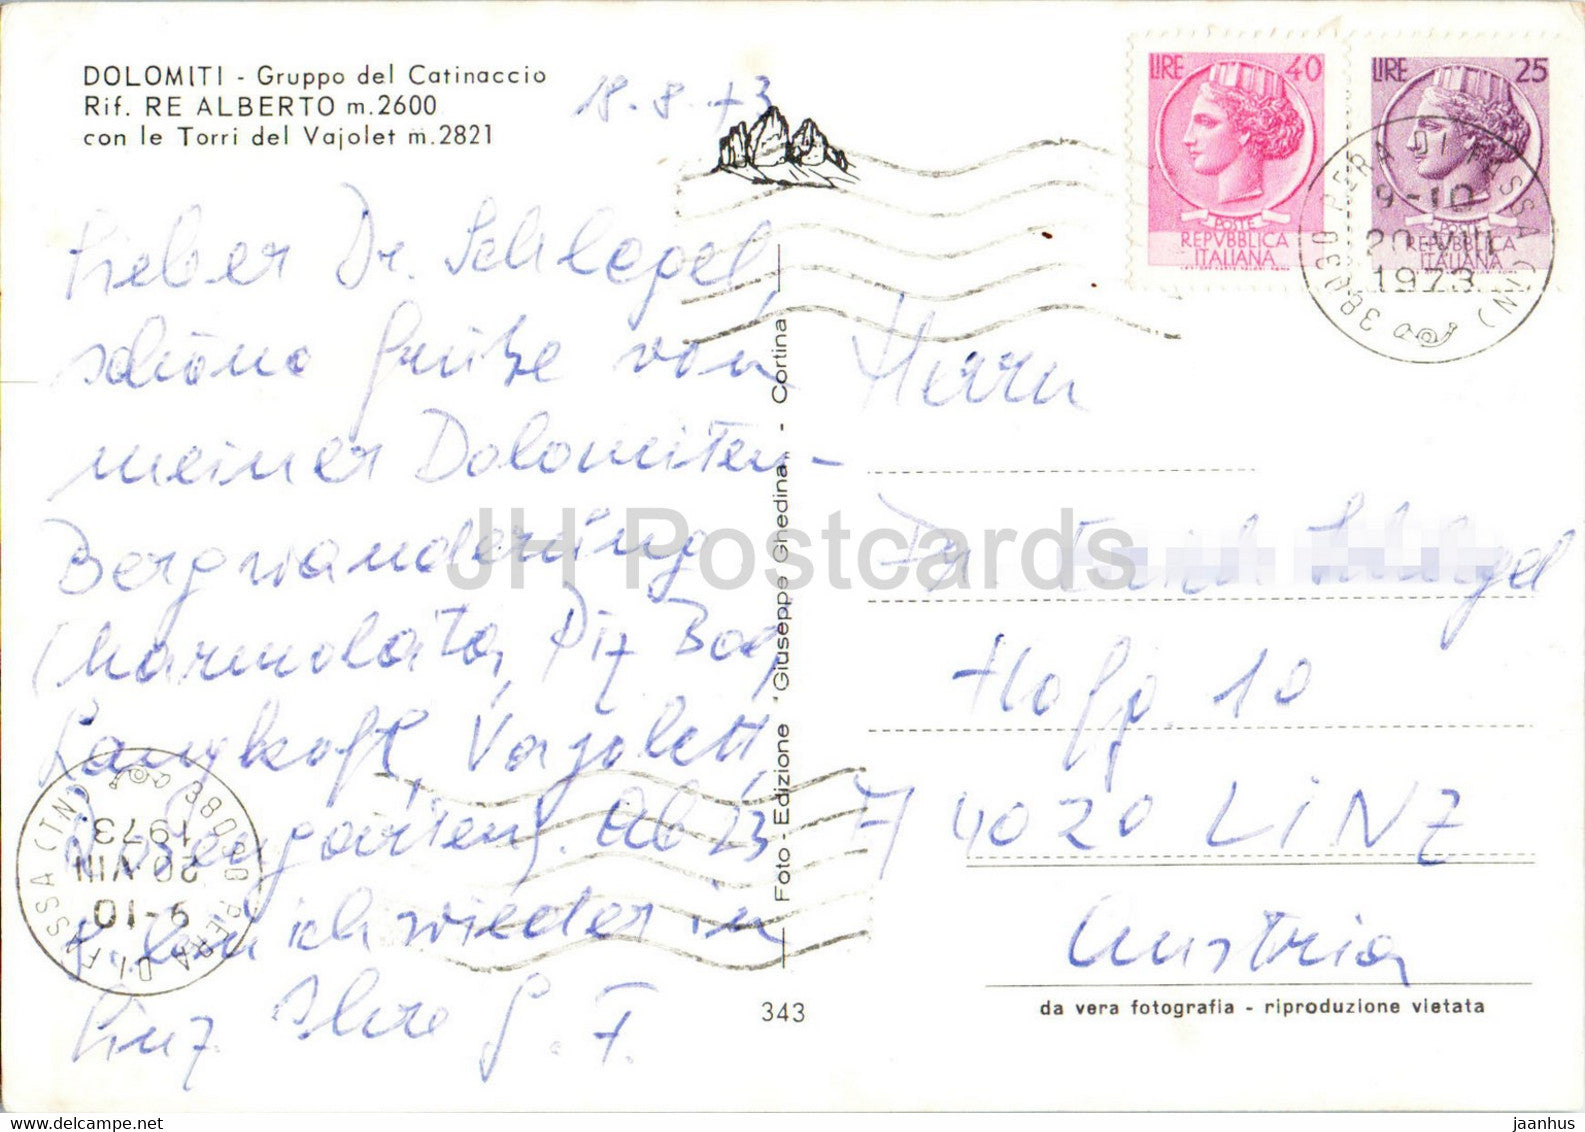 DOLOMITI - Gruppo del Catinaccio
Rif. RE ALBERTO m.2600
con le Torri del Vajolet m.2821
18.8.73
Lieber Dr. Schlegel,
schöne Grüße von
meiner Dolomiten-
Bergwanderung
Charmolata, Piz Boe,
Langkofl, Vajolett,
Rosengarten. Ab 23
bin ich wieder in
Linz. Ihre G. F.
Foto - Edizione Giuseppe Ghedina - Cortina
343
LIRE 40
POSTE
REPVBBLICA
ITALIANA
LIRE 25
POSTE
REPVBBLICA
ITALIANA
38030 PERA DI FASSA (TN)
9-10
20 VIII
1973
Herrn
Dr. Schlegel
Hofg. 10
A 4020 LINZ
Austria
da vera fotografia - riproduzione vietata
38030 PERA DI FASSA (TN)
9-10
20 VIII
1973
JH Postcards
jaanhus @ delcampe.net